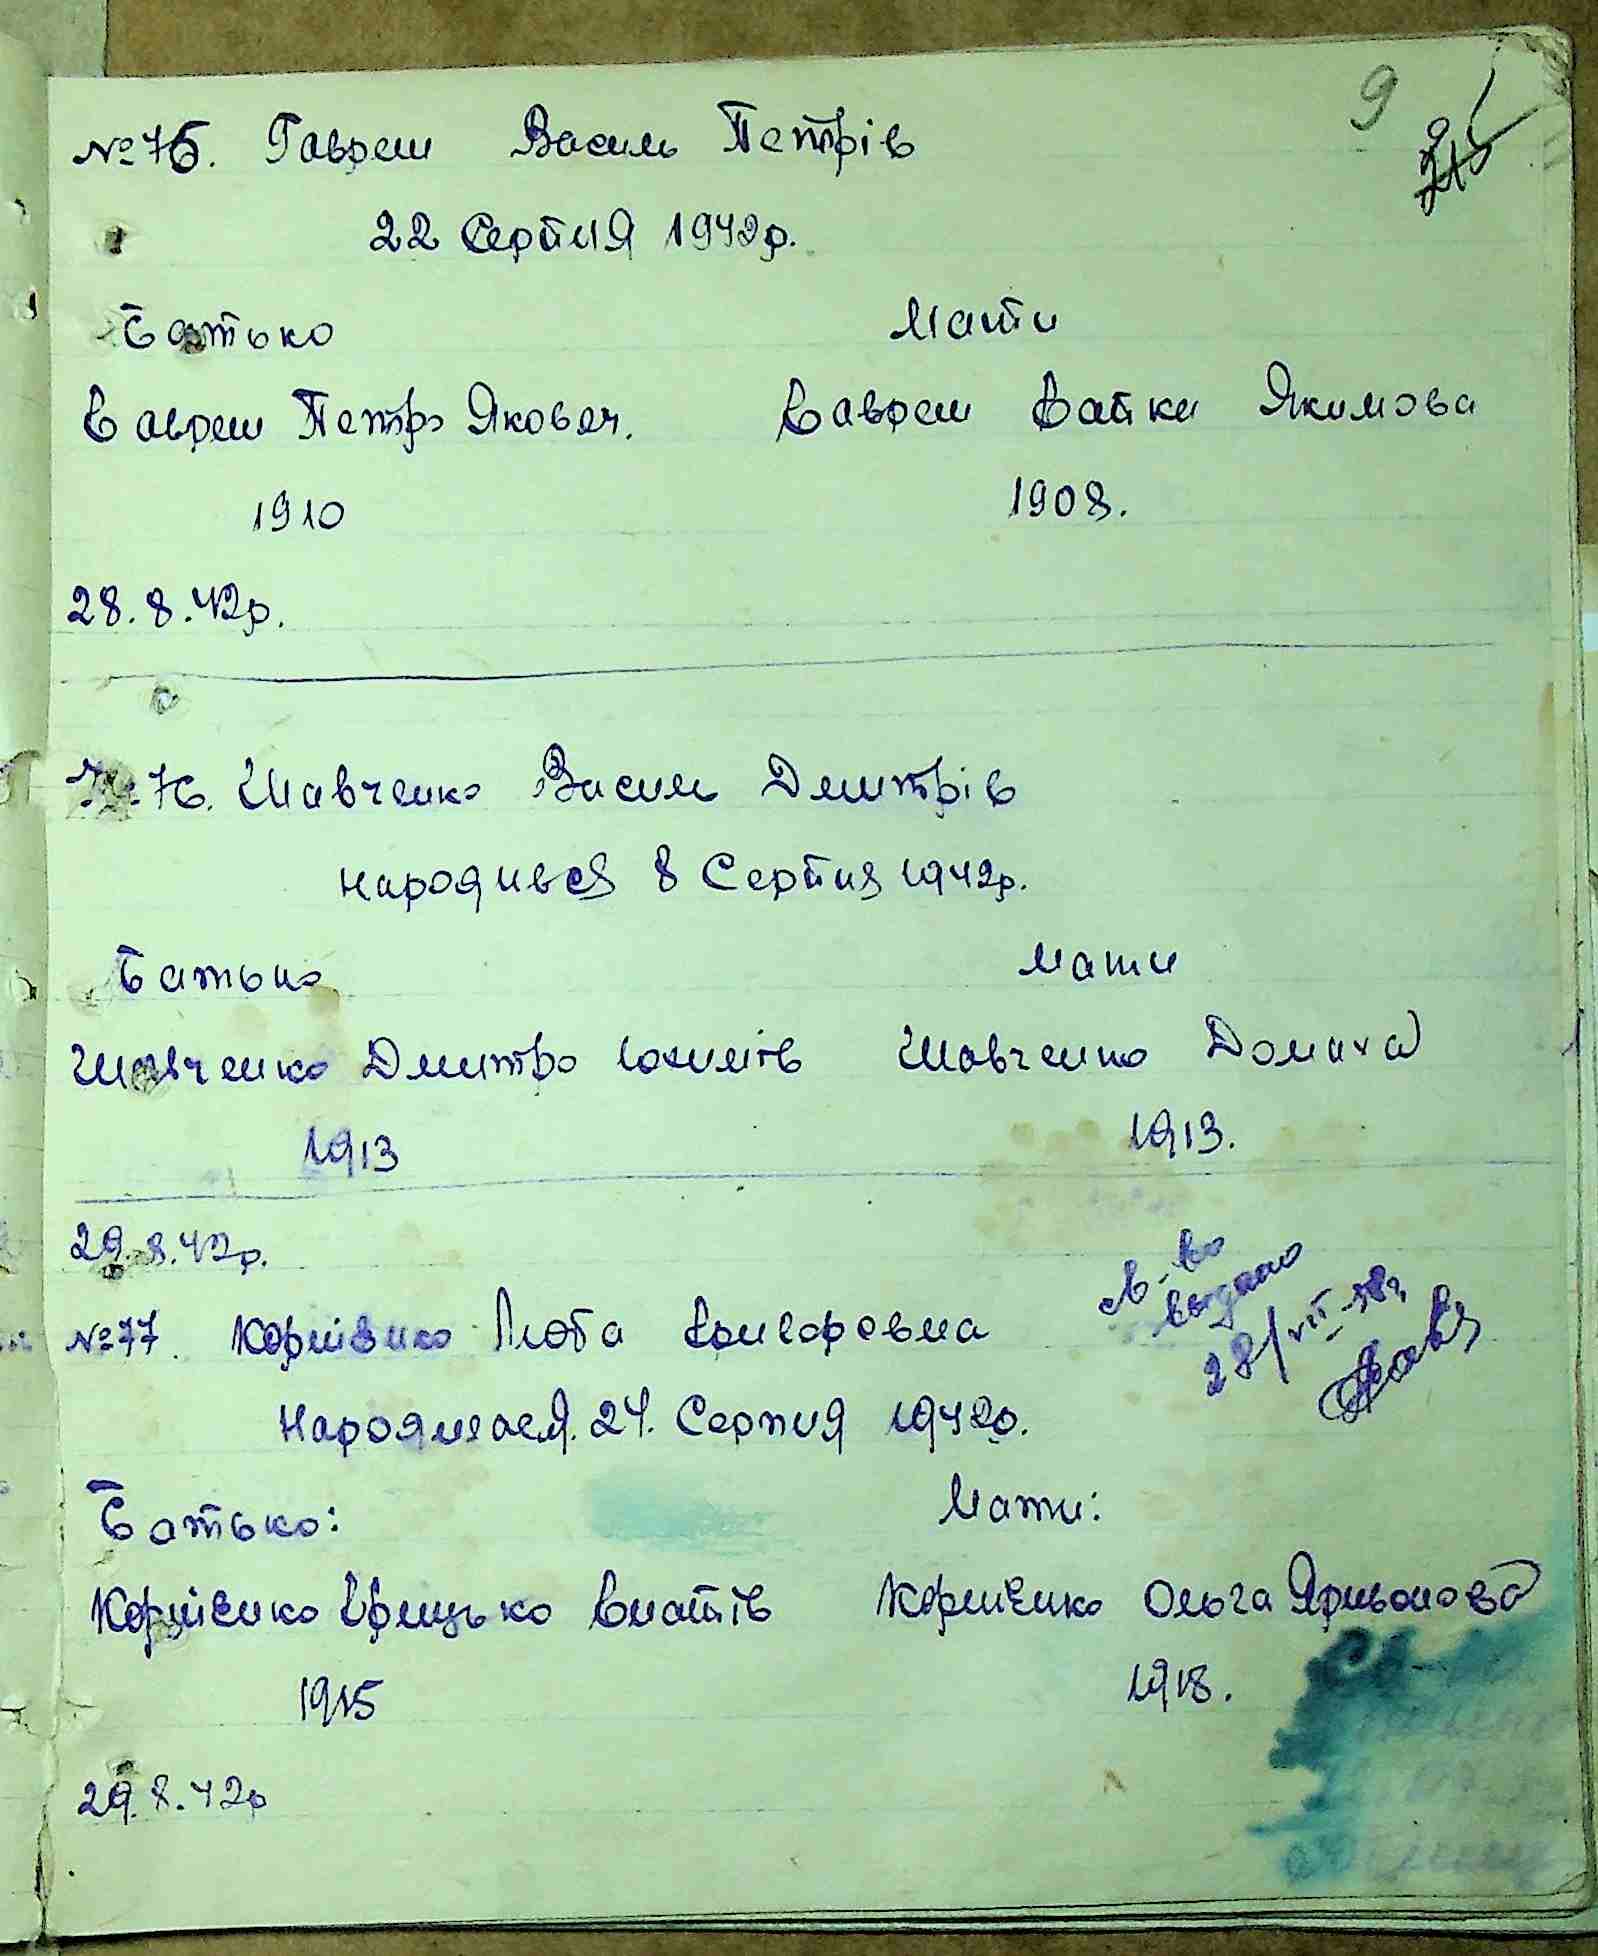 9
№ 75. Гавреш Василь Петрів
22 Серпня 1942р.
Батько Мати
Гавреш Петро Якович. Гавреш Гапка Якимова
1910 1908.
28.8.42р.
№ 76. Шавченко Василь Дмитрів
народився 8 Серпня 1942р.
Батько Мати
Шавченко Дмитро Шавченко Домаха
1913 1913.
29.8.42р.
№ 77. Корнієнко Люба
св-во
выдано
28/VII-58г
Народилася. 24. Серпня 1942р.
Батько: Мати:
Корнієнко Грицько Гнатів Корнієнко Ольга
1915 1918.
29.8.42р